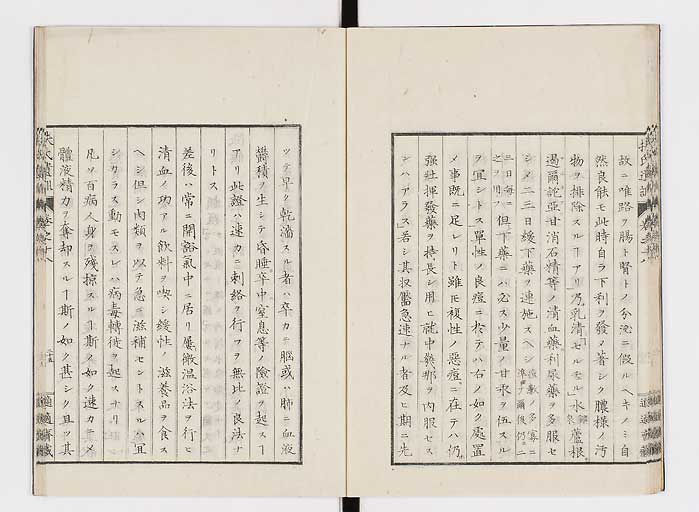 故ニ唯路ヲ腸ト腎トノ分泌ニ假ルヘキノミ自
然良能モ此時自ラ下利ヲ發シ著シク膿様ノ汚
物ヲ排除スルヿアリ乃乳清「モルモル」水 蘆根
遏爾託亞甘消石 等ノ清血藥利尿藥ヲ多服セ
シメ二三日緩下藥ヲ連施スヘシ
三日毎ニ 之ヲ用フ 但下藥ニハ必ス少量ノ甘汞ヲ伍スル
ヲ宜シトス單性ノ良痘ニ於テハ右ノ如ク處置
メ事既ニ足レリト雖モ複性ノ惡痘ニ在テハ仍
強壯揮發藥ヲ持長シ用ヒ就中 那ヲ内服セス
ンハアラス若シ其収靨急速ナル者及ヒ期ニ先
ツテ早ク乾濇スル者ハ卒カニ腦或ハ肺ニ血液
鬱積ノ生シテ昏睡卒中窒息等ノ險證ヲ起スヿ
アリ此證ハ速カニ刺絡ヲ行フヲ無比ノ良法ナ
リトス
差後ハ常ニ開豁氣中ニ居リ屢微温浴法ヲ行ヒ
清血ノ功アル飲料ヲ喫シ緩性ノ滋養品ヲ食ス
ヘシ但シ肉類ヲ以テ急ニ滋補セントスルハ宜
シカラス動モスレハ病毒轉徙ヲ起スナリ
凡ソ百病人身ヲ殘掠スルヿ斯ノ如ク速カニメ
體液精力ヲ奪却スルヿ斯ノ如ク甚シク且ツ其